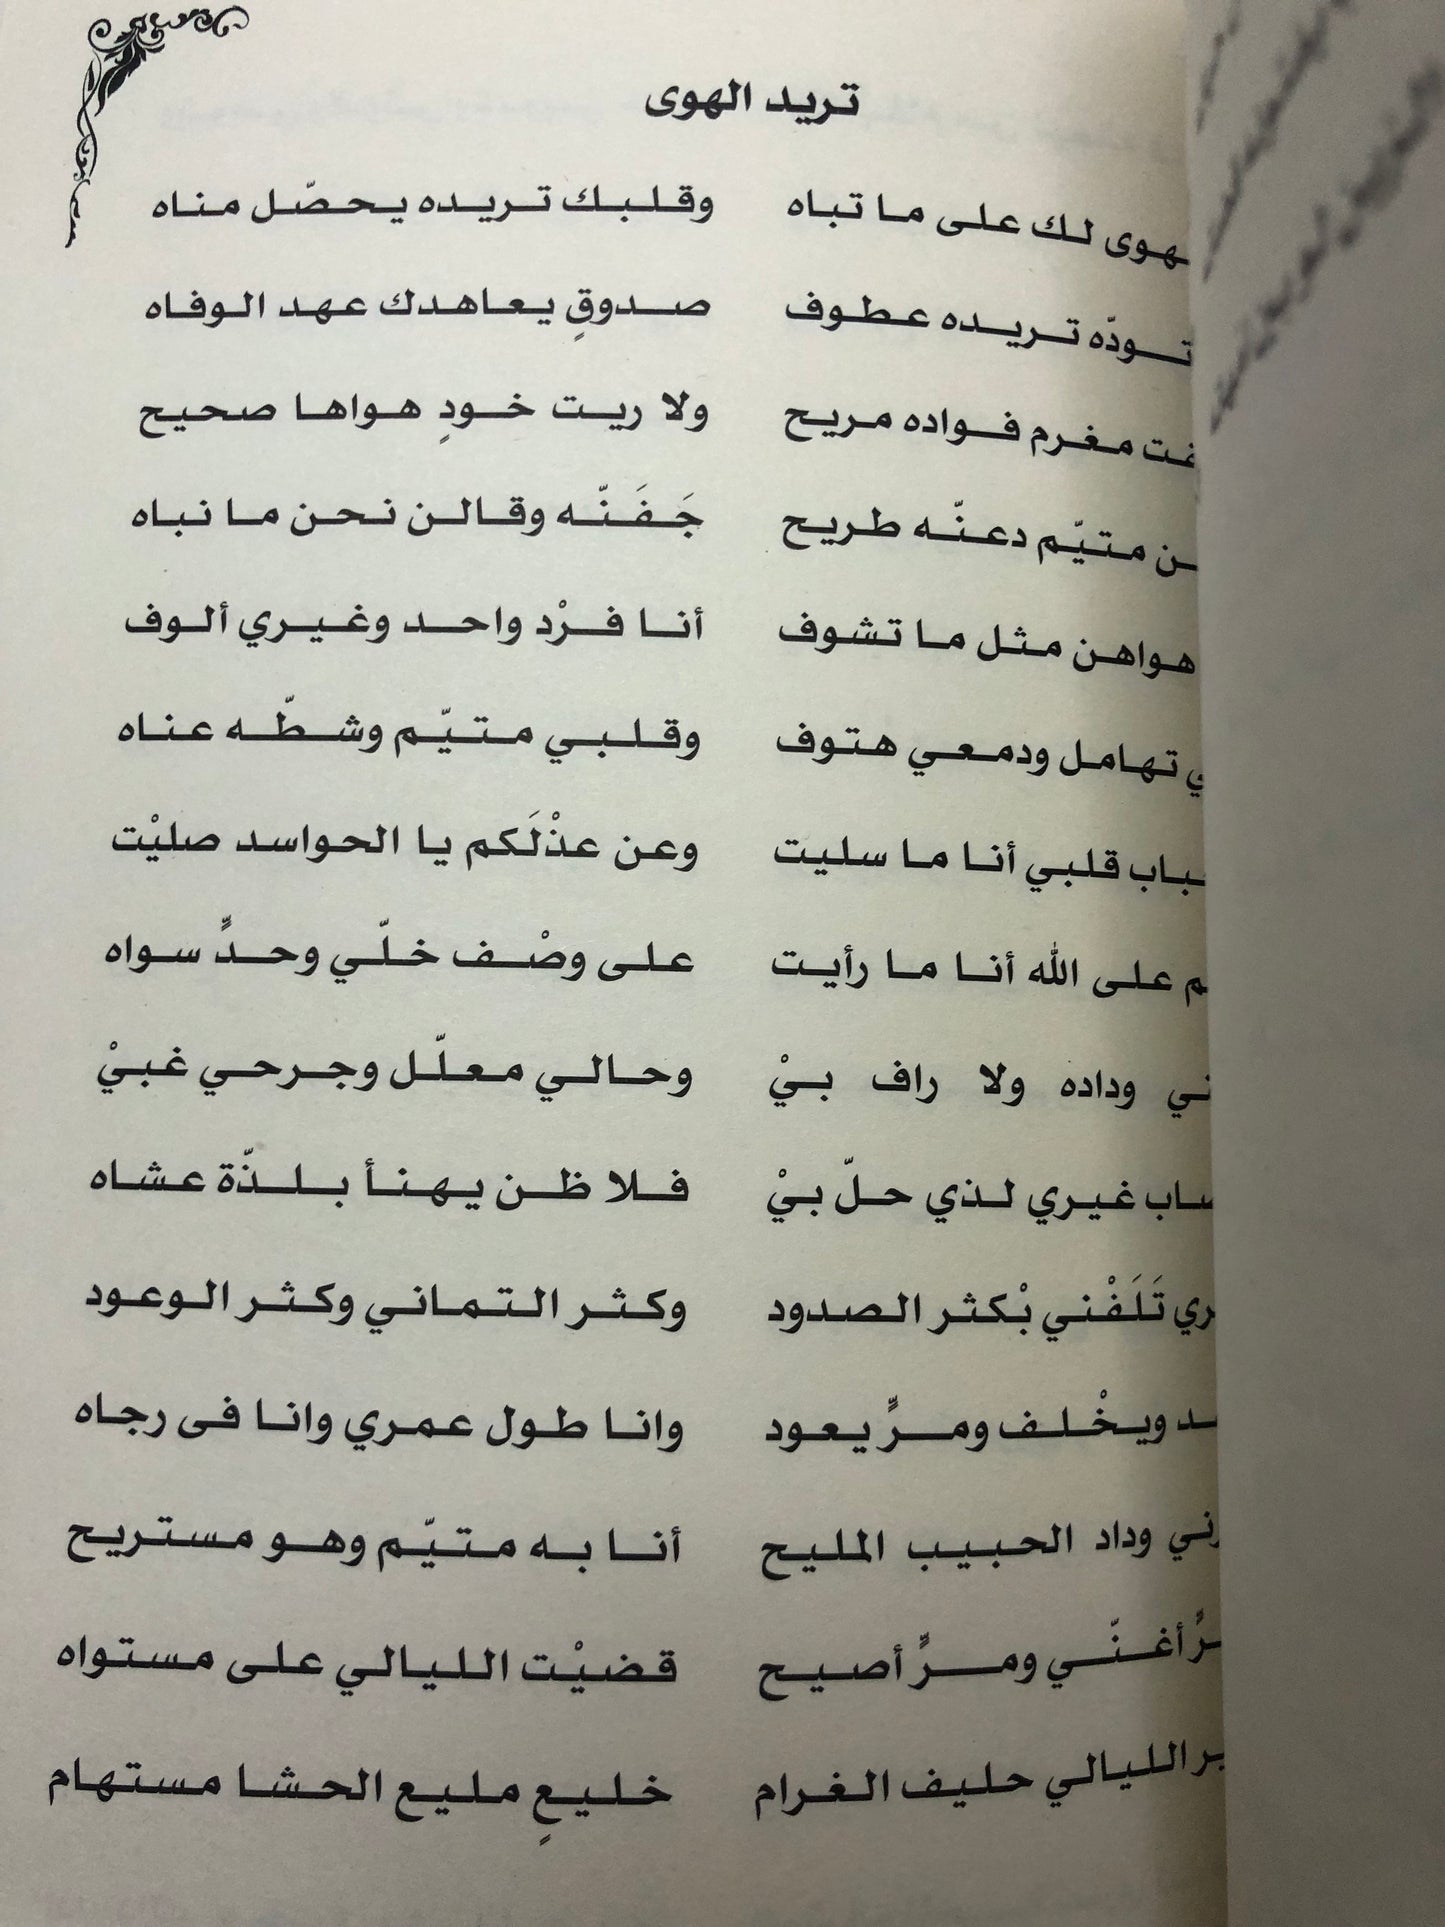 تريد الهوى
لك على ما تباه وقلبك تريده يحصّل مناه
تودّه تريده عطوف صدوقٍ يعاهدك عهد الوفاه
مغرم فواده مريح ولا ريت خودٍ هواها صحيح
متيّم دعنّه طريح جَفَنَّه وقالن نحن ما نباه
هواهن مثل ما تشوف أنا فرْد واحد وغيري ألوف
تهامل ودمعي هتوف وقلبي متيّم وشطّه عناه
قلبي أنا ما سليت وعن عذْلَكم يا الحواسد صليْت
على الله أنا ما رأيت على وصْف خلّي وحدٍّ سواه
وداده ولا راف بيْ وحالي معلّل وجرحي غبيْ
غيري لذي حلّ بيْ فلا ظن يهنأ بلذّة عشاه
تَلَفْني بْكثر الصدود وكثر التماني وكثر الوعود
ويخْلف ومرٍّ يعود وانا طول عمري وانا فى رجاه
وداد الحبيب المليح أنا به متيّم وهو مستريح
أغنّي ومرٍّ أصيح قضيْت الليالي على مستواه
الليالي حليف الغرام خليعٍ مليع الحشا مستهام